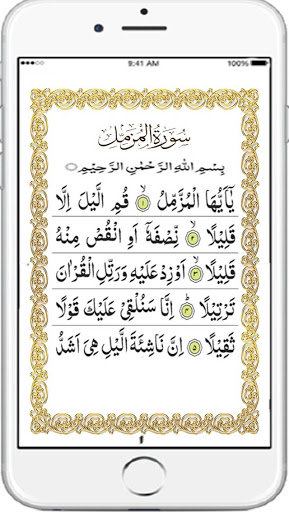 9:41 AM 100%
سورة المزمل
بِسْمِ اللهِ الرَّحْمٰنِ الرَّحِيْمِ
يٰٓاَيُّهَا الْمُزَّمِّلُ ۝۱ قُمِ الَّيْلَ اِلَّا
قَلِيْلًا ۝۲ نِّصْفَهٗٓ اَوِ انْقُصْ مِنْهُ
قَلِيْلًا ۝۳ اَوْ زِدْ عَلَيْهِ وَرَتِّلِ الْقُرْاٰنَ
تَرْتِيْلًا ۝۴ اِنَّا سَنُلْقِيْ عَلَيْكَ قَوْلًا
ثَقِيْلًا ۝۵ اِنَّ نَاشِئَةَ الَّيْلِ هِيَ اَشَدُّ
۱